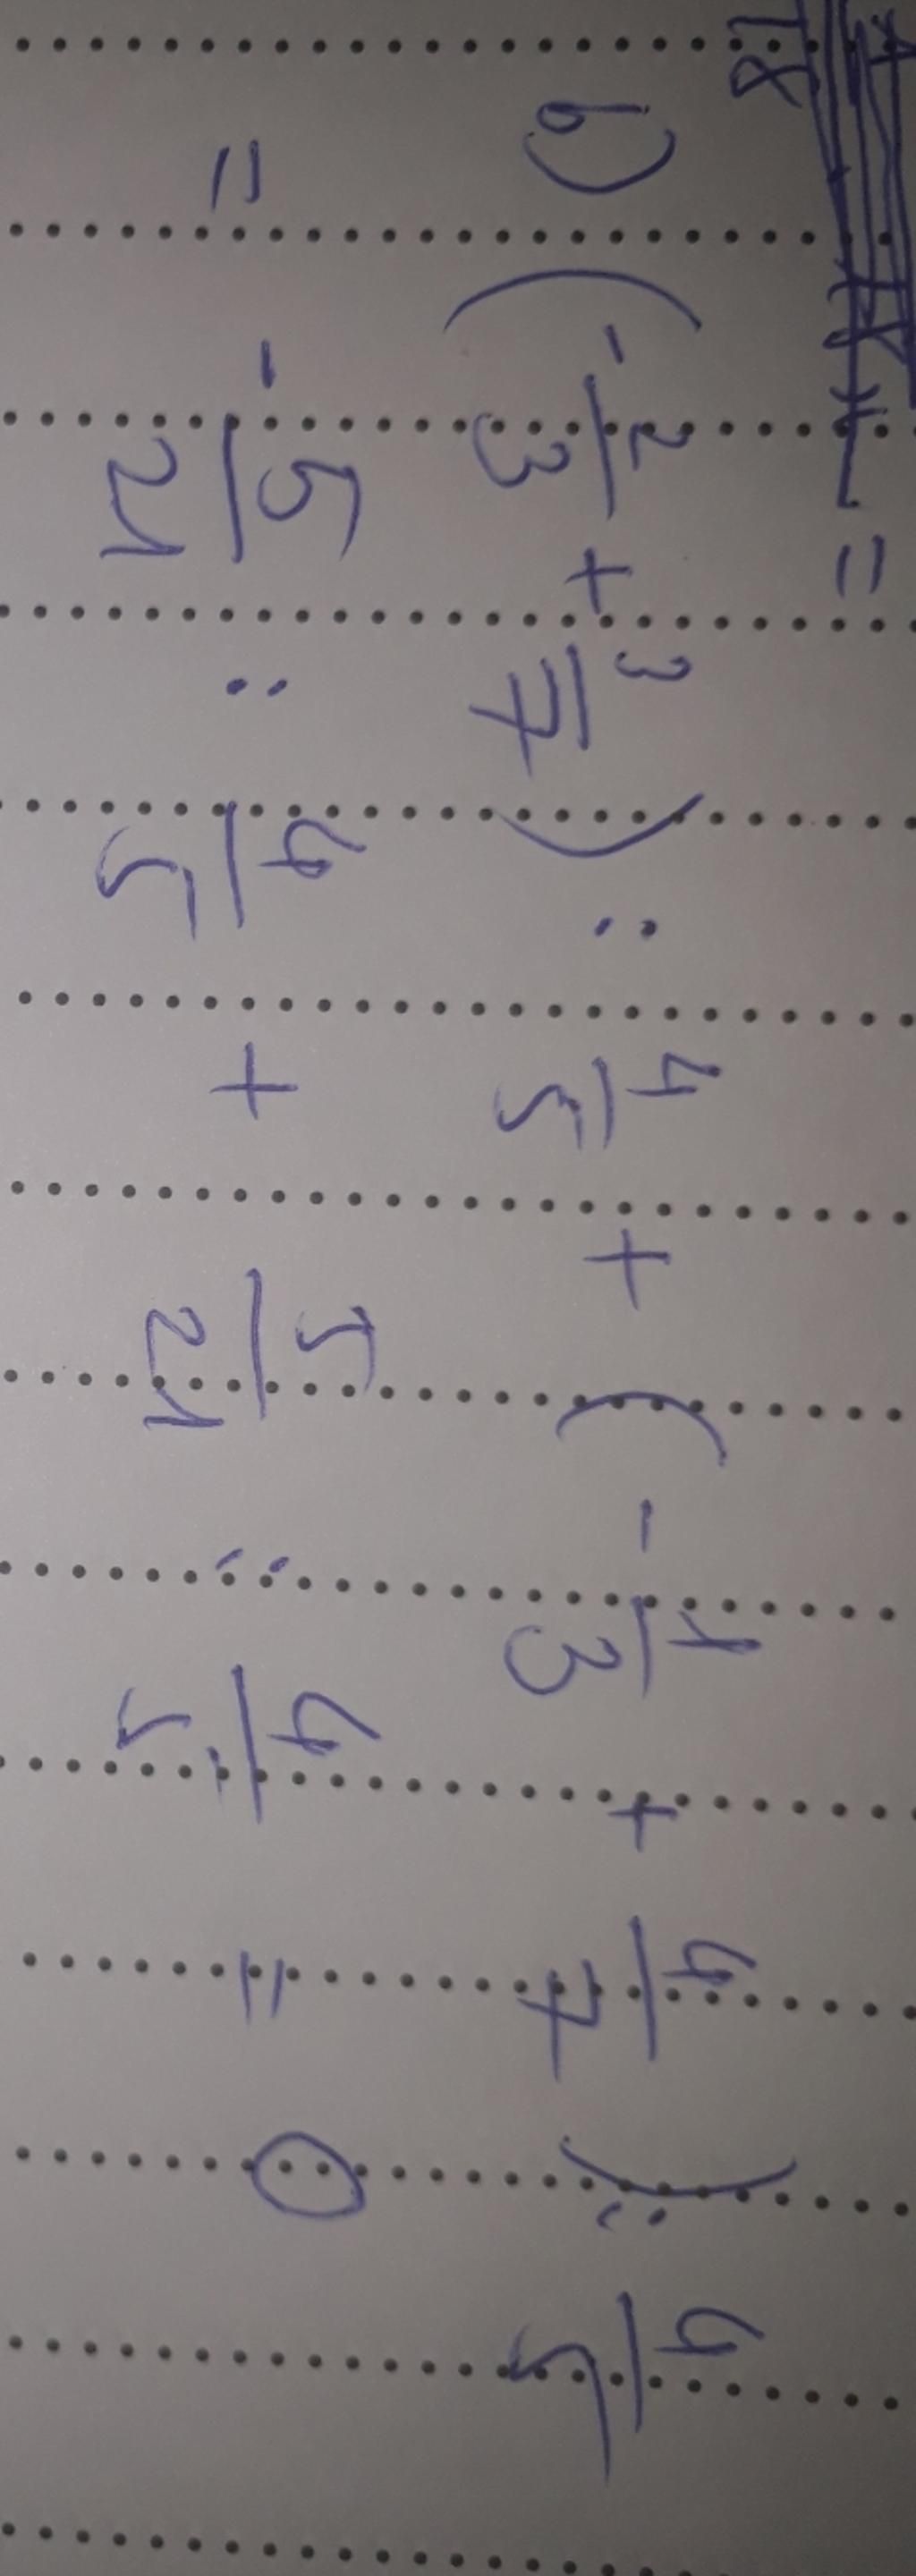 18 =
b) (-2/3 + 3/7) : 4/5 + (-1/3 + 4/7) : 4/5
= -5/21 : 4/5 + 5/21 : 4/5 = 0